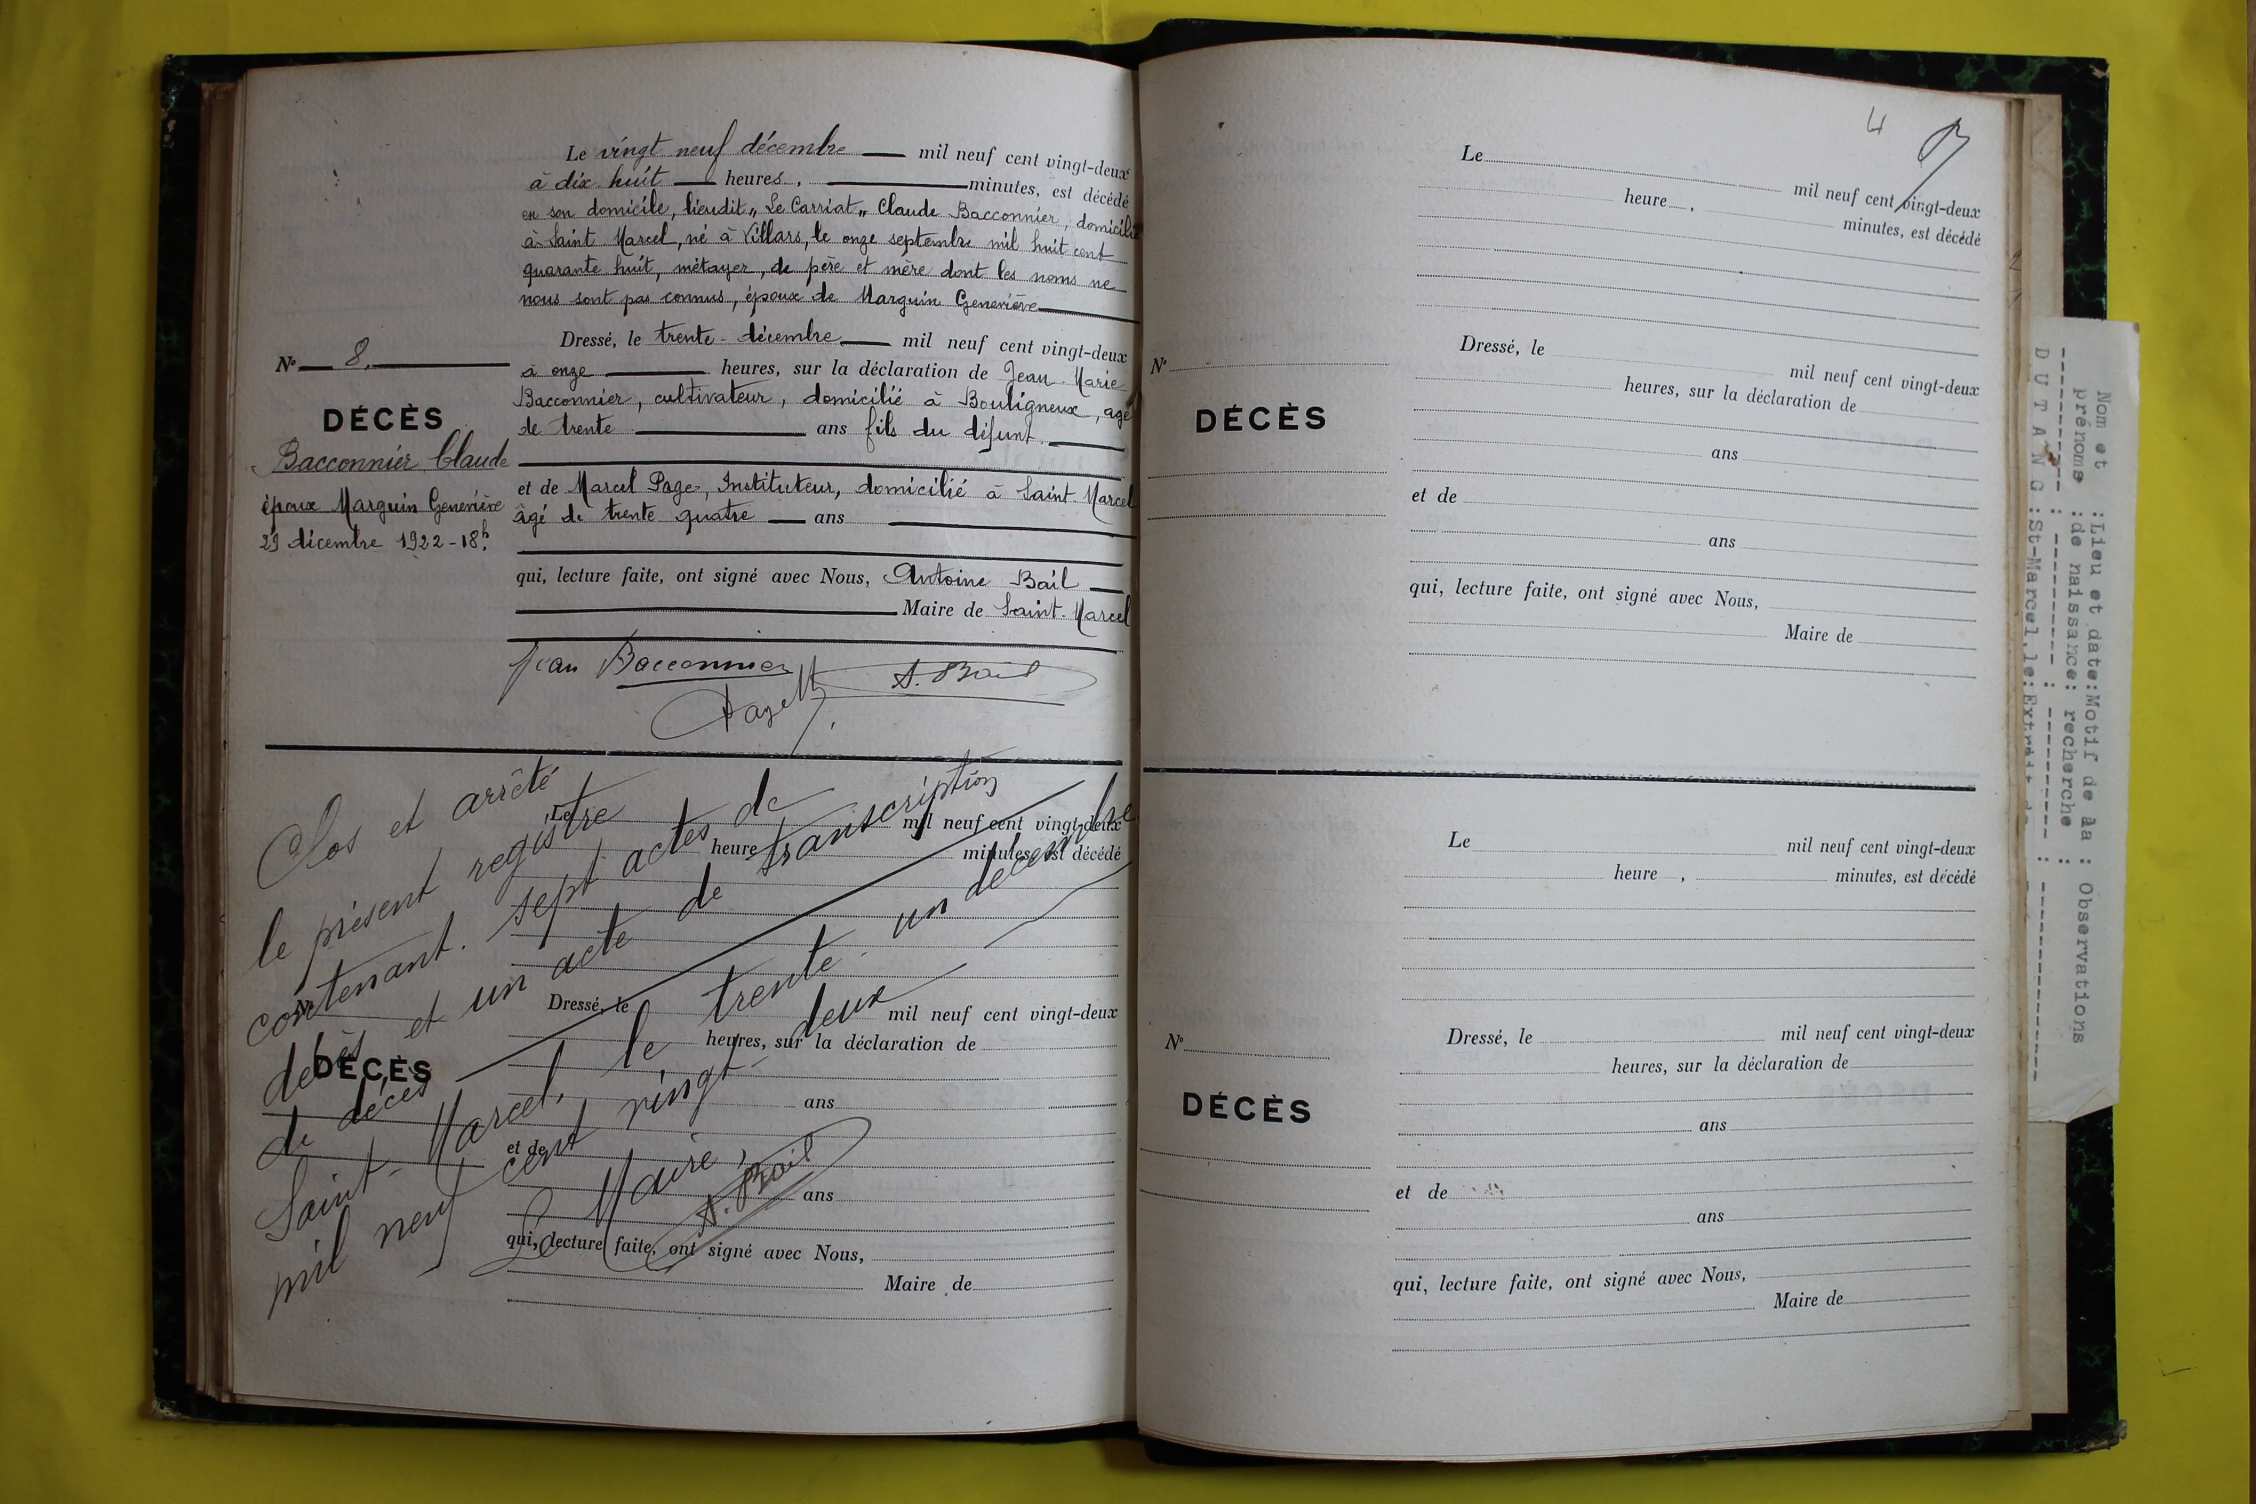 Le vingt neuf décembre mil neuf cent vingt-deux
à dix huit heures, minutes, est décédé
en son domicile, lieudit „ Le Carriat „ Claude Bacconnier, domicilié
à Saint Marcel, né à Villars, le onze septembre mil huit cent
quarante huit, métayer, de père et mère dont les noms ne
nous sont pas connus, époux de Marguin Geneviève
Dressé, le trente décembre mil neuf cent vingt-deux
à onze heures, sur la déclaration de Jean Marie
Bacconnier, cultivateur, domicilié à Bouligneux, agé
de trente ans fils du défunt.
et de Marcel Page, Instituteur, domicilié à Saint Marcel
âgé de trente quatre ans
qui, lecture faite, ont signé avec Nous, Antoine Bail
Maire de Saint-Marcel
Nº 8.
DÉCÈS
Bacconnier Claude
époux Marguin Geneviève
29 décembre 1922 - 18h.
Jean Bacconnier
A. Bail
Clos et arrêté
le présent registre
contenant sept actes de
décès et un acte de transcription
de décès
Saint-Marcel, le trente-un décembre
mil neuf cent vingt-deux
Le Maire,
A. Bail
Le mil neuf cent vingt-deux
heure minutes, est décédé
Nº
DÉCÈS
Dressé, le mil neuf cent vingt-deux
heures, sur la déclaration de
ans
et de
ans
qui, lecture faite, ont signé avec Nous,
Maire de
4
Le mil neuf cent vingt-deux
heure , minutes, est décédé
Dressé, le mil neuf cent vingt-deux
Nº
heures, sur la déclaration de
DÉCÈS
ans
et de
ans
qui, lecture faite, ont signé avec Nous,
Maire de
Le mil neuf cent vingt-deux
heure , minutes, est décédé
Dressé, le mil neuf cent vingt-deux
Nº
heures, sur la déclaration de
DÉCÈS
ans
et de
ans
qui, lecture faite, ont signé avec Nous,
Maire de
Nom et :Lieu et date:Motif de la : Observations
prénoms :de naissance: recherche :
DUTANG :St-Marcel,le:Extrait